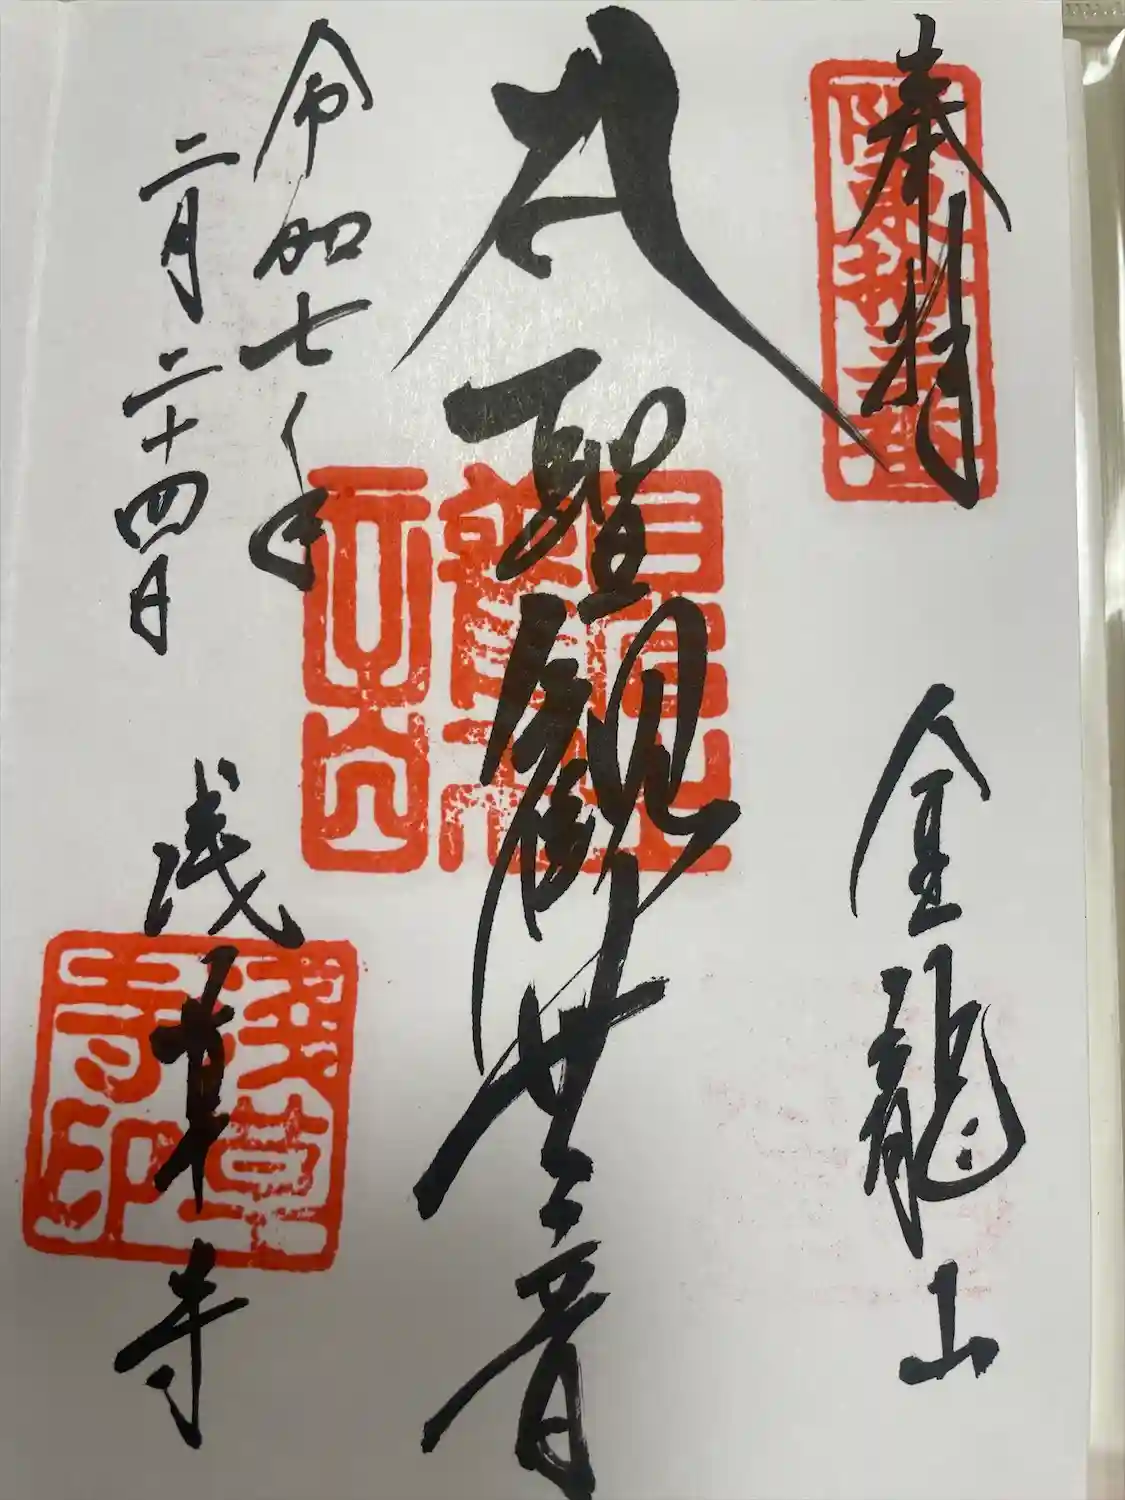 奉拝
坂東拾三番
金龍山
聖観世音
令和七年
二月二十四日
浅草寺
浅草寺印